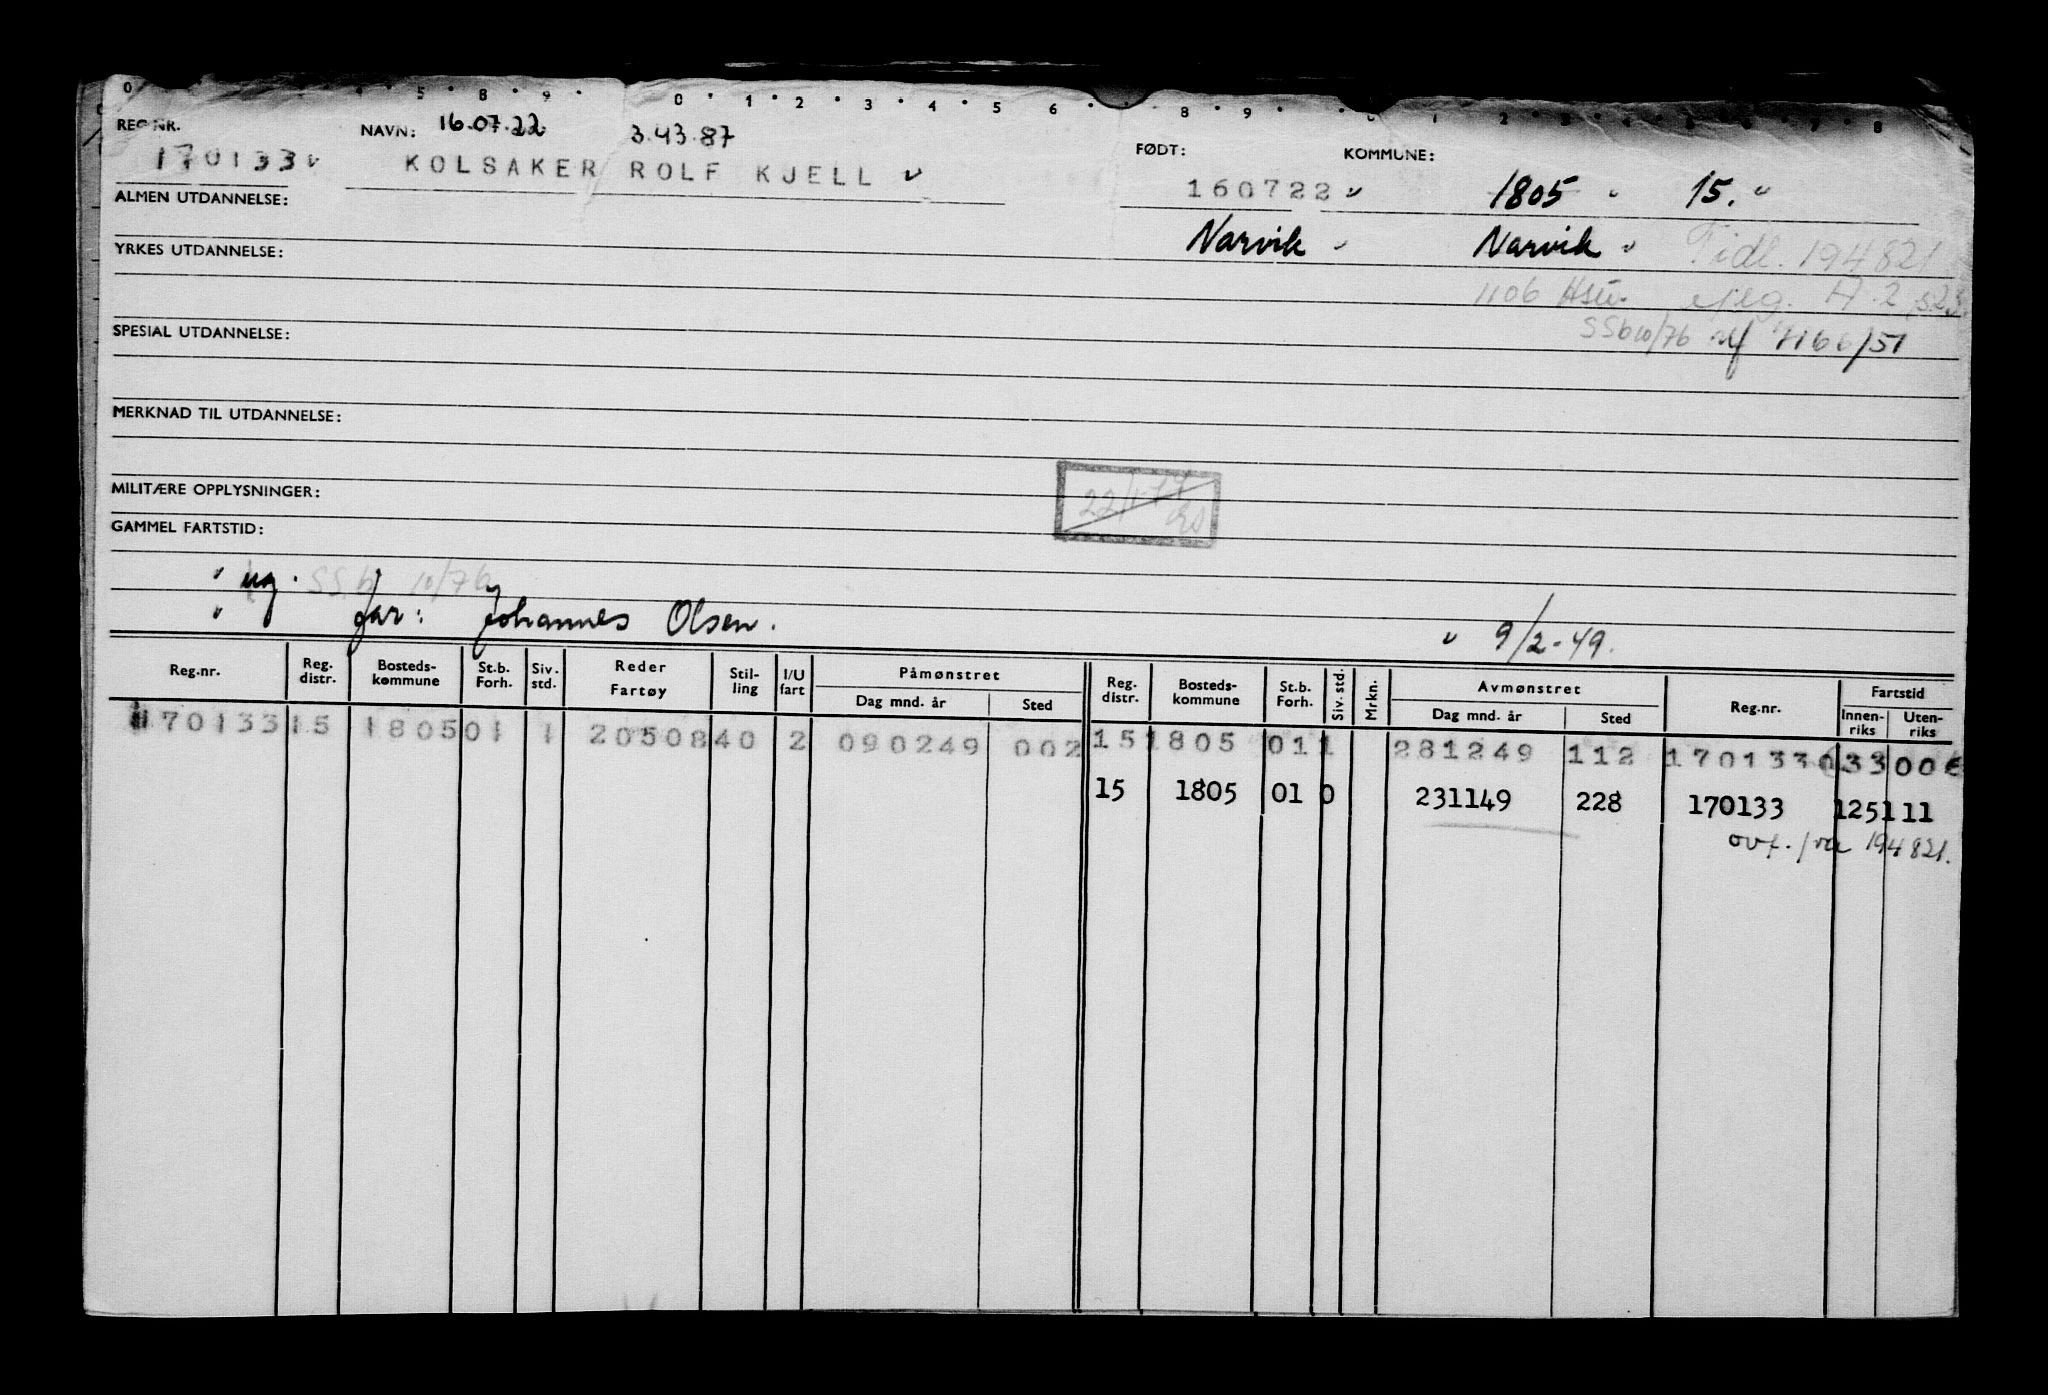 0 5 8 9 0 1 2 3 4 5 6 8 9 0 1 2 3 4 5 6 7 8
REG.NR. NAVN: 16.07.22 3.43.87 FØDT: KOMMUNE:
170133 KOLSAKER ROLF KJELL 160722 1805 15.
ALMEN UTDANNELSE:
Narvik Narvik Tidl. 194821
YRKES UTDANNELSE:
1106 A. 2
SSb 10/76 /51
SPESIAL UTDANNELSE:
MERKNAD TIL UTDANNELSE:
MILITÆRE OPPLYSNINGER:
GAMMEL FARTSTID:
ug. SSb 10/76
far: Johannes Olsen. 9/2-49.
Reg.nr. Reg. distr. Bosteds-kommune St.b. Forh. Siv. std. Reder Fartøy Stil-ling I/U fart Påmønstret Dag mnd. år Sted Reg. distr. Bosteds-kommune St.b. Forh. Siv. std. Mrkn. Avmønstret Dag mnd. år Sted Reg.nr. Fartstid Innen-riks Uten-riks
170133 15 1805 01 1 20508 40 2 090249 002 15 1805 01 1 281249 112 170133 033 00
15 1805 01 0 231149 228 170133 125111
ovf. fra 194821.